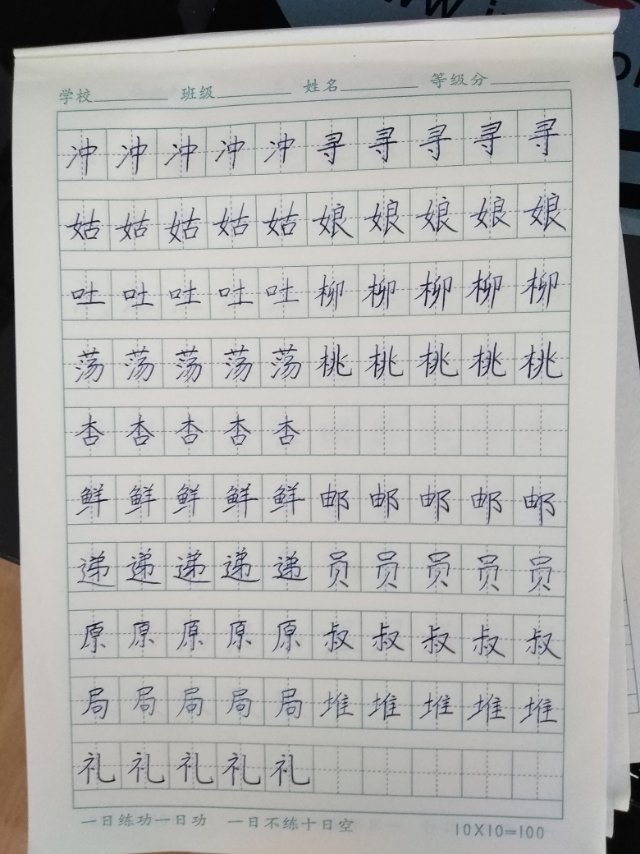 学校 班级 姓名 等级分
冲冲冲冲冲寻寻寻寻寻
姑姑姑姑姑娘娘娘娘娘
吐吐吐吐吐柳柳柳柳柳
荡荡荡荡荡桃桃桃桃桃
杏杏杏杏杏
鲜鲜鲜鲜鲜邮邮邮邮邮
递递递递递员员员员员
原原原原原叔叔叔叔叔
局局局局局堆堆堆堆堆
礼礼礼礼礼
一日练功一日功 一日不练十日空 10X10=100